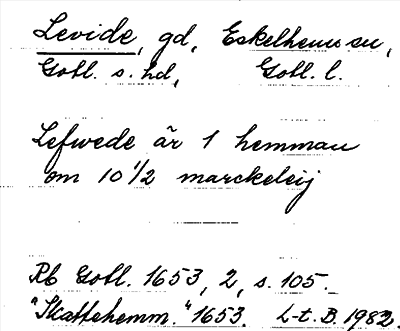 Levide, gd, Eskelhems sn,
Gotl. s. hd, Gotl. l.
Lefwede är 1 hemman
om 10 1/2 marckeleij
Rb Gotl. 1653, 2, s. 105.
"Skattehemm." 1653. L-t. B. 1982.